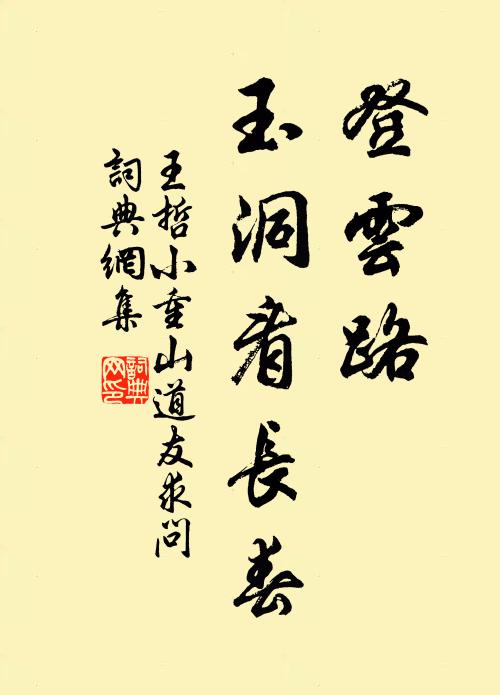 登雲路
玉洞看長春
王哲小重山道友求問
詞典網集
詞典
网印